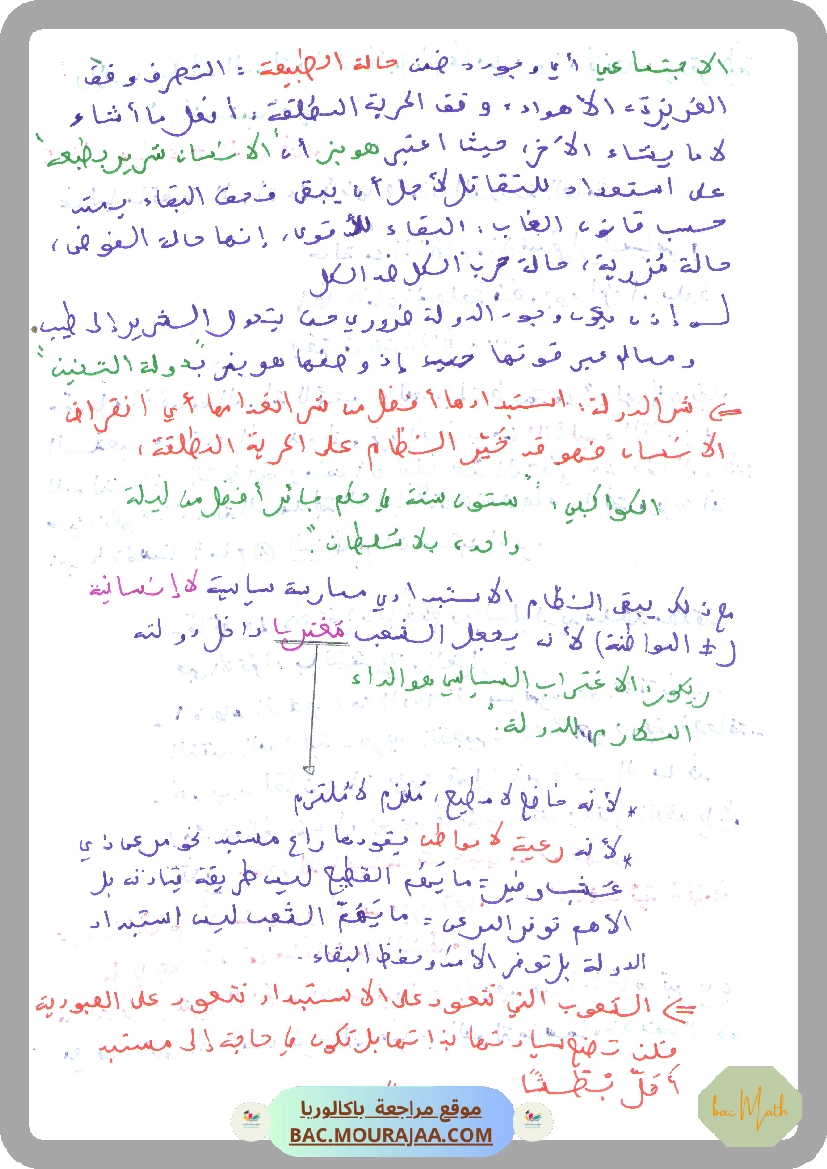 الاجتماعي أي وجوده ضمن حالة الطبيعة = التصرف وفق
الغريزة = الأهواء = وفق الحرية المطلقة: أفعل ما أشاء
لا ما يشاء الآخر، حيث اعتبر هوبز أن "الانسان شرير بطبعه"
على استعداد للتقاتل لأجل أن يبقى فحق البقاء يمتد
حسب قانون الغاب: البقاء للأقوى، إنها حالة الفوضى،
حالة مُزرية، حالة حرب الكل ضد الكل
إذن يكون وجود الدولة ضروري حتى يتحول الشرير إلى طيب.
ومسالم عبر قوتها إذ وصفها هوبز بـ"دولة التنين"
<= شر الدولة: استبدادها أفضل من شر انعدامها أي انقراض
الانسان فهو قد خَيّر النظام على الحرية المطلقة،
الكواكبي: "ستون سنة في حكم جائر أفضل من ليلة
واحدة بلا سُلطان".
مع ذلك يبقى النظام الاستبدادي ممارسة سياسية لا إنسانية
(≠ المواطنة) لأنه يجعل الشعب مُغتربا داخل دولته
ويكون "الاغتراب السياسي هو الداء
الملازم للدولة".
* لأنه خاضع لا مطيع، مُلزم لا مُلتزم
* لأنه رعية لا مواطن يقودها راع مستبد نحو مرعى ذي
عشب وفير = ما يَهُم القطيع ليس طريقة قيادته بل
الأهم توفر المرعى = ما يَهُمّ الشعب ليس استبداد
الدولة بل توفر الأمن وحفظ البقاء.
<= الشعوب التي تتعود على الاستبداد تتعود على العبودية
فلن تصنع سيادتها بذاتها بل تكون في حاجة إلى مستبد
أقلّ بَطْشًا
موقع مراجعة باكالوريا
BAC.MOURAJAA.COM
bac Math